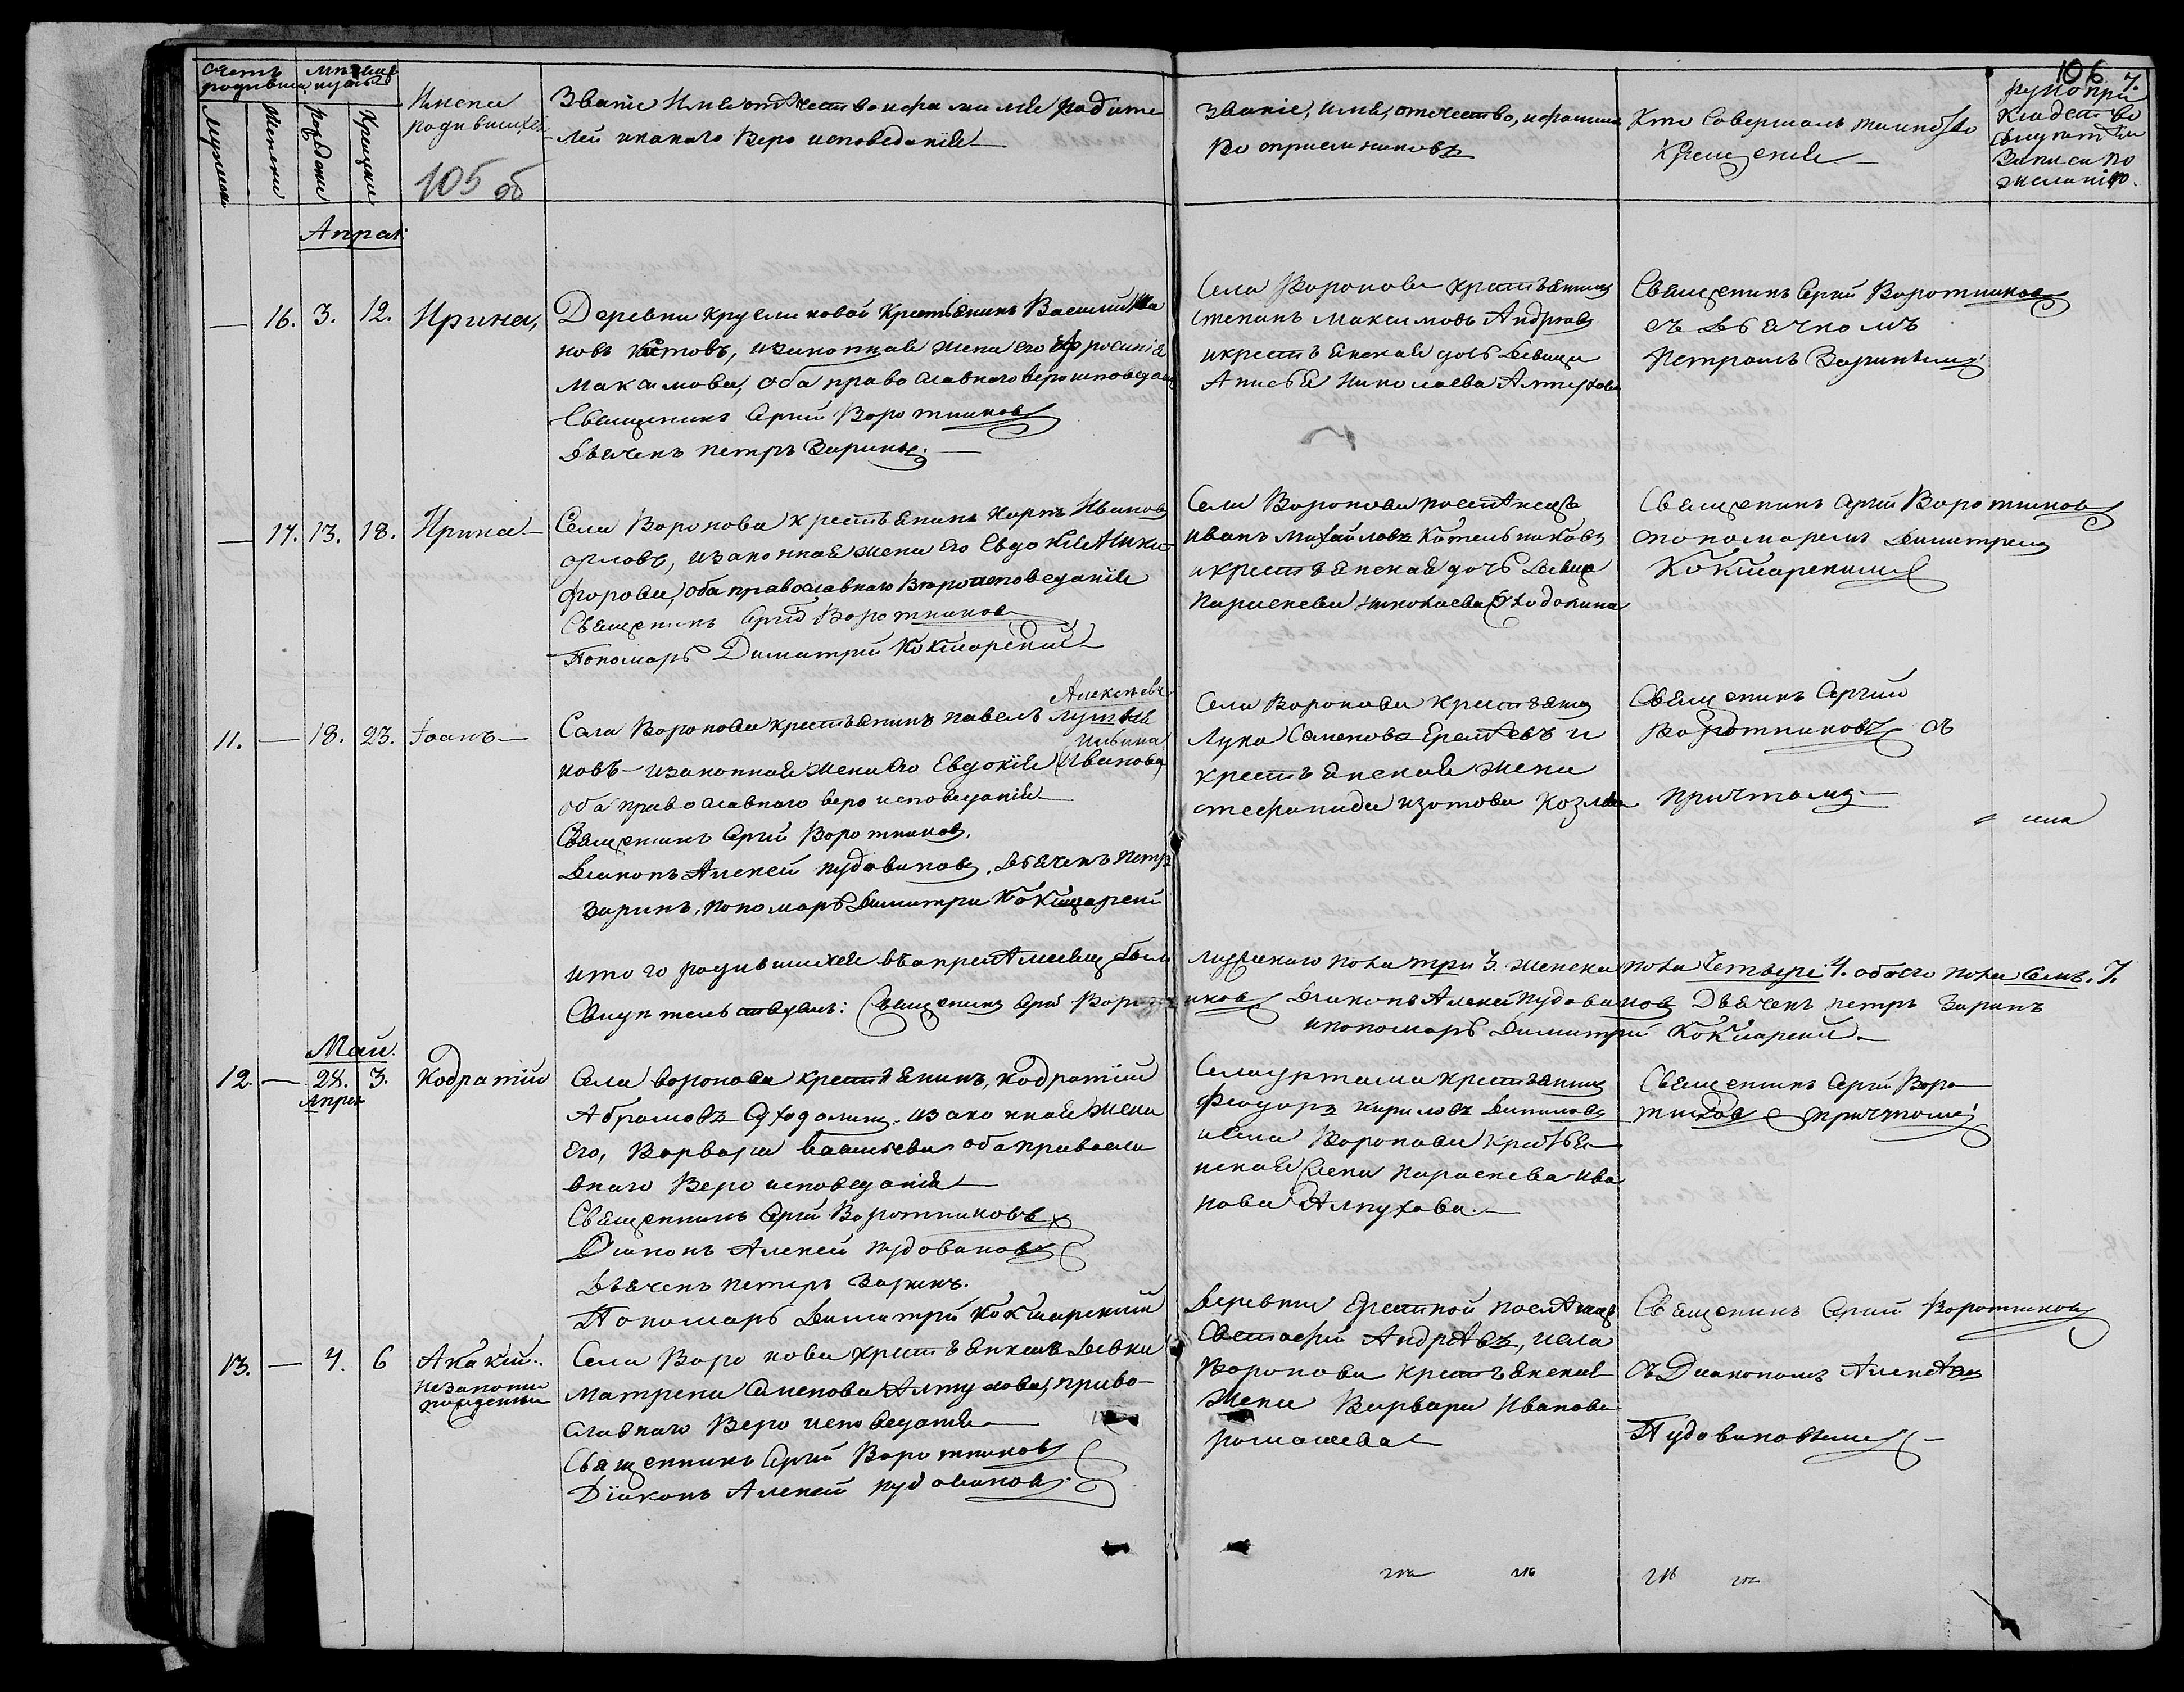 106
7.
Счетъ родившихся
Мѣсяцъ
Мужеска
Женска
рожденія
Крещенія
Имена
родившихся
105 об
Званіе Имя отчество и фамилія родите
лей и какого Веро исповеданія
Званіе, имя, отечество, и фамилія
Восприемниковъ
Кто Совершалъ таинство
Крещенія
рукопри
кладство
Свидѣтелей
Записи по
желанію.
Апрѣл:
— 16. 3. 12. Ирина,
Деревни Кругликовой Крестьянинъ Василий Ива
новъ Китовъ, изаконная жена его Ефросиния
Максимова, оба православного вероисповедания
Священникъ Сергий Воротниковъ
Дьячекъ петръ Заринъ.
Села Воронова крестьянинъ
степанъ Максимовъ Андреевъ
икрестьянская дочь девица
Анисья Николаева Алтухова
Священникъ Сергий Воротниковъ
съ Дьячкомъ
Петромъ Заринымъ
— 17. 13. 18. Ирина —
Села Воронова крестьянинъ Карпъ Ивановъ
орловъ, изаконная жена его Евдокия Ники-
форова, оба православнаго Вероисповеданія
Священникъ Сергій Воротниковъ
Пономарь Димитрий Кокшарский
Села Воронова поселѣнецъ
иванъ михайловъ Котельниковъ
икрестьянская дочь Девица
Параскева николаева Суходолина
Священникъ Сергий Воротниковъ
спономаремъ Димитриемъ
Кокшарскимъ
11. — 18. 23. Іоанъ —
Алексѣевъ
Села Воронова крестьянинъ павелъ
новъ — изаконная жена его Евдокія (Иванова)
Ильина
оба православнаго веро исповеданія
Священникъ Сергий Воротниковъ.
Диаконъ Алексей пудовиковъ. Дьячекъ петръ
Заринъ, пономарь Димитри Кокшарский
Села Воронова крестьянинъ
Лука Семеновъ Еремѣевъ и
крестьянская жена
стефанида изотова Козлова
Священникъ Сергий
Воротниковъ съ
причтомъ
итого родившихся въ апрелѣ месяцѣ было мужескаго пола три 3. женска пола четыре 4. обоего пола семь. 7.
Свидѣтельствуемъ: Священникъ Сергий Воротниковъ Диаконъ Алексей Пудовиковъ Дьячекъ петръ Заринъ
и пономарь Димитрий Кокшарский
Май.
12. — 28. 3. Кодратій
Апрел
Села воронова крестьянинъ, кодратій
Абрамовъ Суходолинъ. изаконная жена
Его, Варвара Васильева оба правосла
внаго Веро исповеданія
Священникъ Сергий Воротниковъ
Диаконъ Алексей пудовиковъ
Дьячекъ петръ Заринъ.
Пономарь Димитрий Кокшарский
Села уртама крестьянинъ
Феодоръ Кириловъ Вининовъ
исела Воронова крестья
нская жена параскева ива
нова Алтухова.
Священникъ Сергий Воро
тниковъ с причтомъ
13. — 4. 6 Акакій..
незаконно
рожденны
Села Воронова крестьянская девка
матрена Семенова Алтухова, право-
славнаго Веро исповедания
Священникъ Сергий Воротниковъ
Діаконъ Алексей пудовиковъ
Деревни Ерестной поселѣнецъ
Евстафий Андрѣевъ, исела
Воронова крестьянская
жена Варвара Иванова
ромашева
Священникъ Сергий Воротниковъ
съ Диакономъ Алексѣемъ
Пудовиковымъ